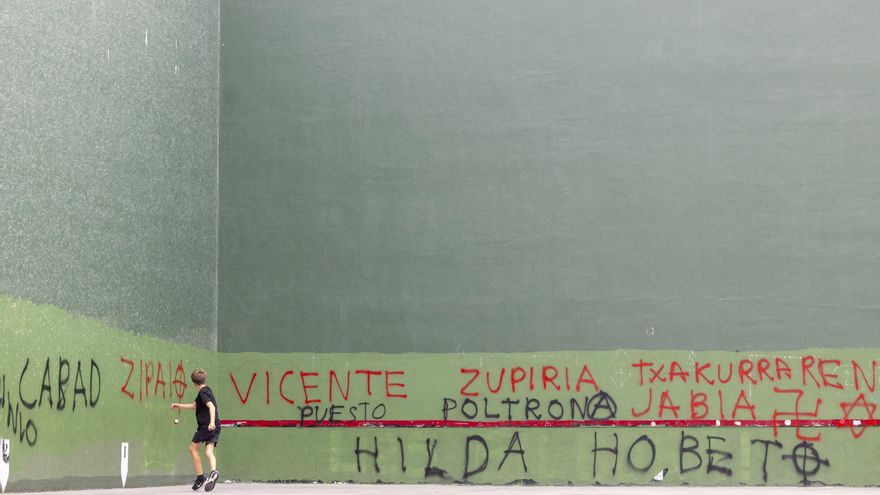 CABAD
ZIPAIO
VICENTE ZUPIRIA TXAKURRAREN
PUESTO POLTRONA JABIA
HILDA HOBETO